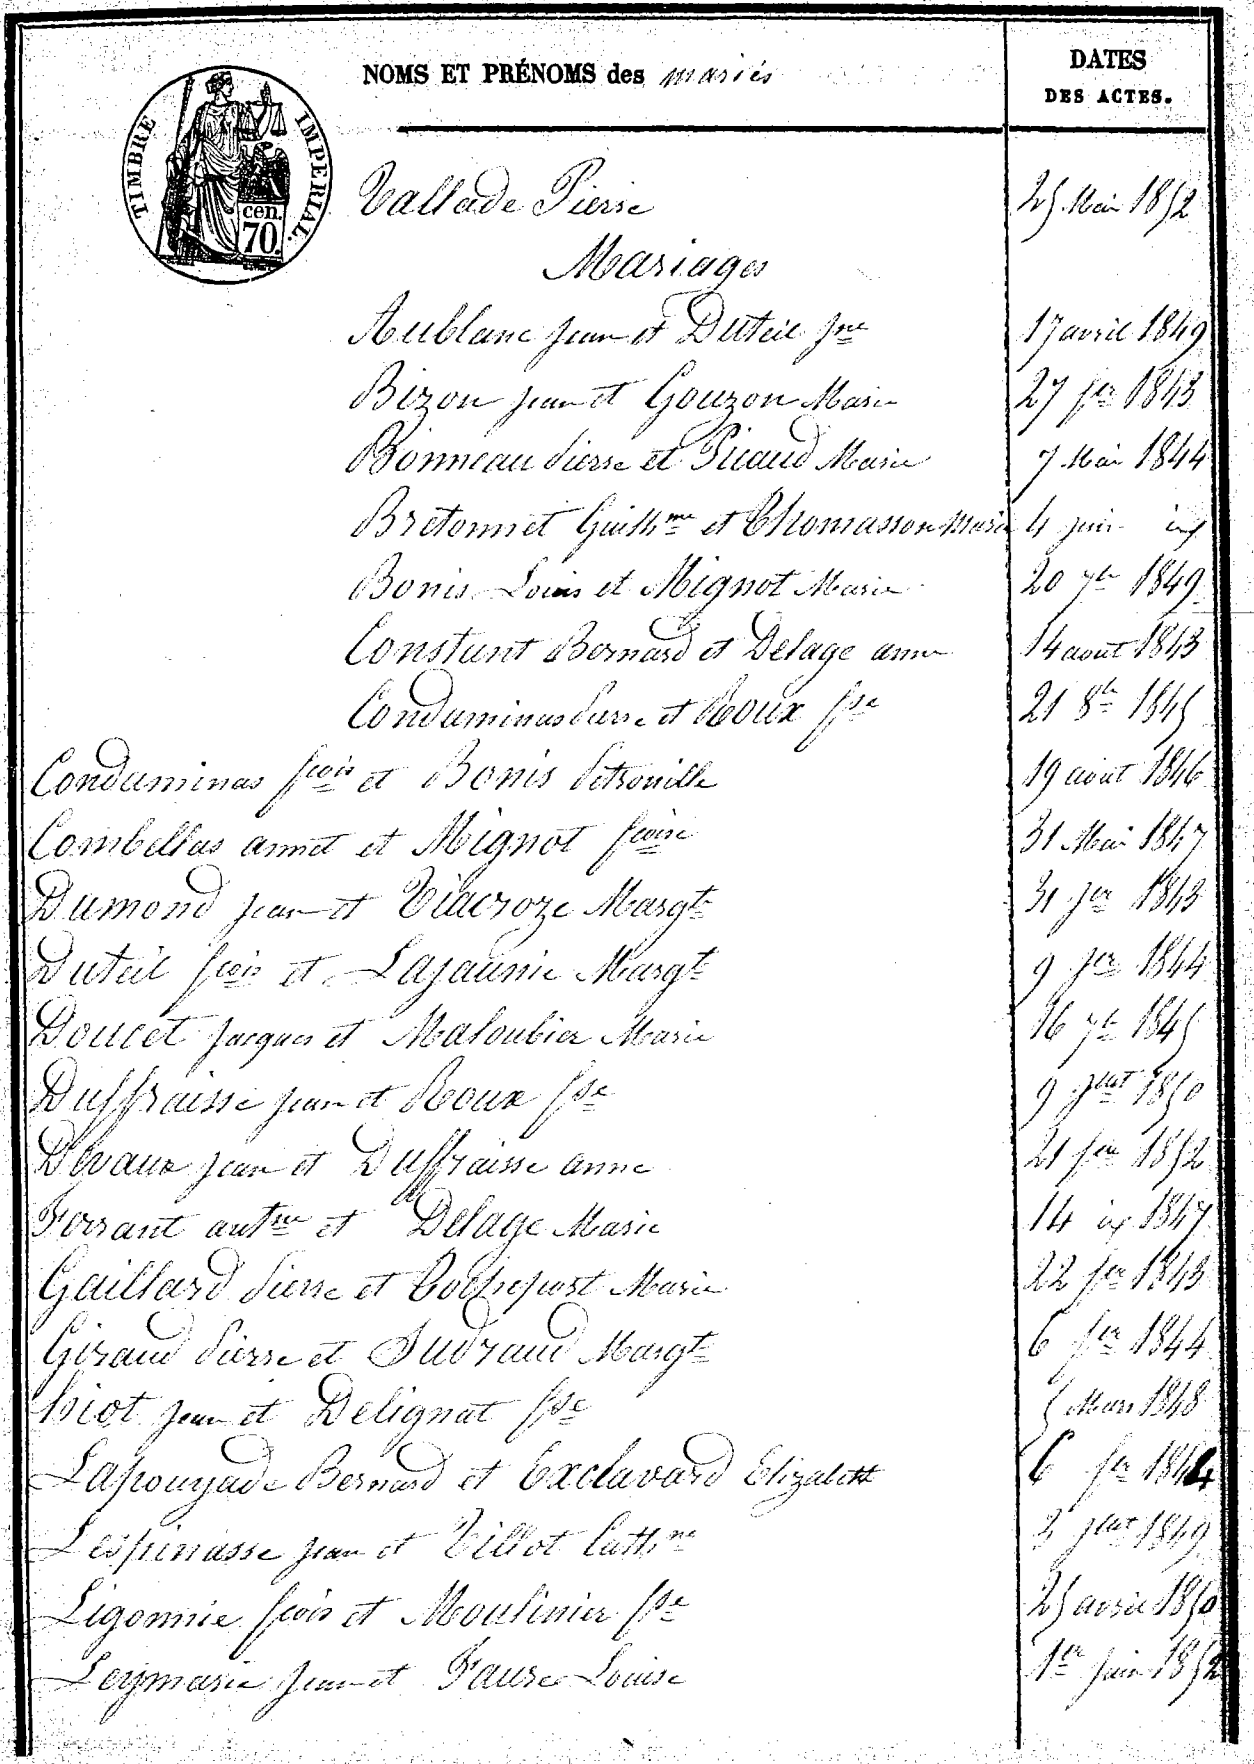 NOMS ET PRÉNOMS des mariés
DATES
DES ACTES.
TIMBRE IMPERIAL.
cen.
70.
Vallade Pierre 25 Mai 1852
Mariages
Aublanc Jean et Duteil Jne 17 avril 1849
Bizon Jean et Gouzon Marie 27 fer 1843
Bonneau Pierre et Picaud Marie 7 Mai 1844
Bretonnet Guillme et Thomasson Marie 4 juin id
Bonis Louis et Mignot Marie 20 7bre 1849
Constant Bernard et Delage anne 14 aout 1843
Conduminas Pierre et Roux fse 21 8bre 1845
Conduminas fcois et Bonis Petronille 19 aout 1846
Combellas annet et Mignot fcoise 31 Mai 1847
Dumond Jean et Viacroze Margte 31 jer 1843
Duteil fcois et Lajaunie Margte 9 jer 1844
Doucet Jacques et Maloubier Marie 16 7bre 1845
Duffraisse Jean et Roux fse 9 jllet 1850
Devaux Jean et Duffraisse anne 21 fer 1852
Ferrant antne et Delage Marie 14 1847
Gaillard Pierre et Rochefort Marie 22 fer 1843
Giraud Pierre et Sudraud Margte 6 fer 1844
hiot Jean et Delignat fse 5 Mars 1848
Lapouyade Bernard et Exclavard Elizabeth 6 fer 1844
Lespinasse Jean et Villot Cathne 3 jllet 1849
Ligonnie fcois et Moulinier fse 25 avril 1850
Leymarie Jean et Faure Louise 1er Juin 1852